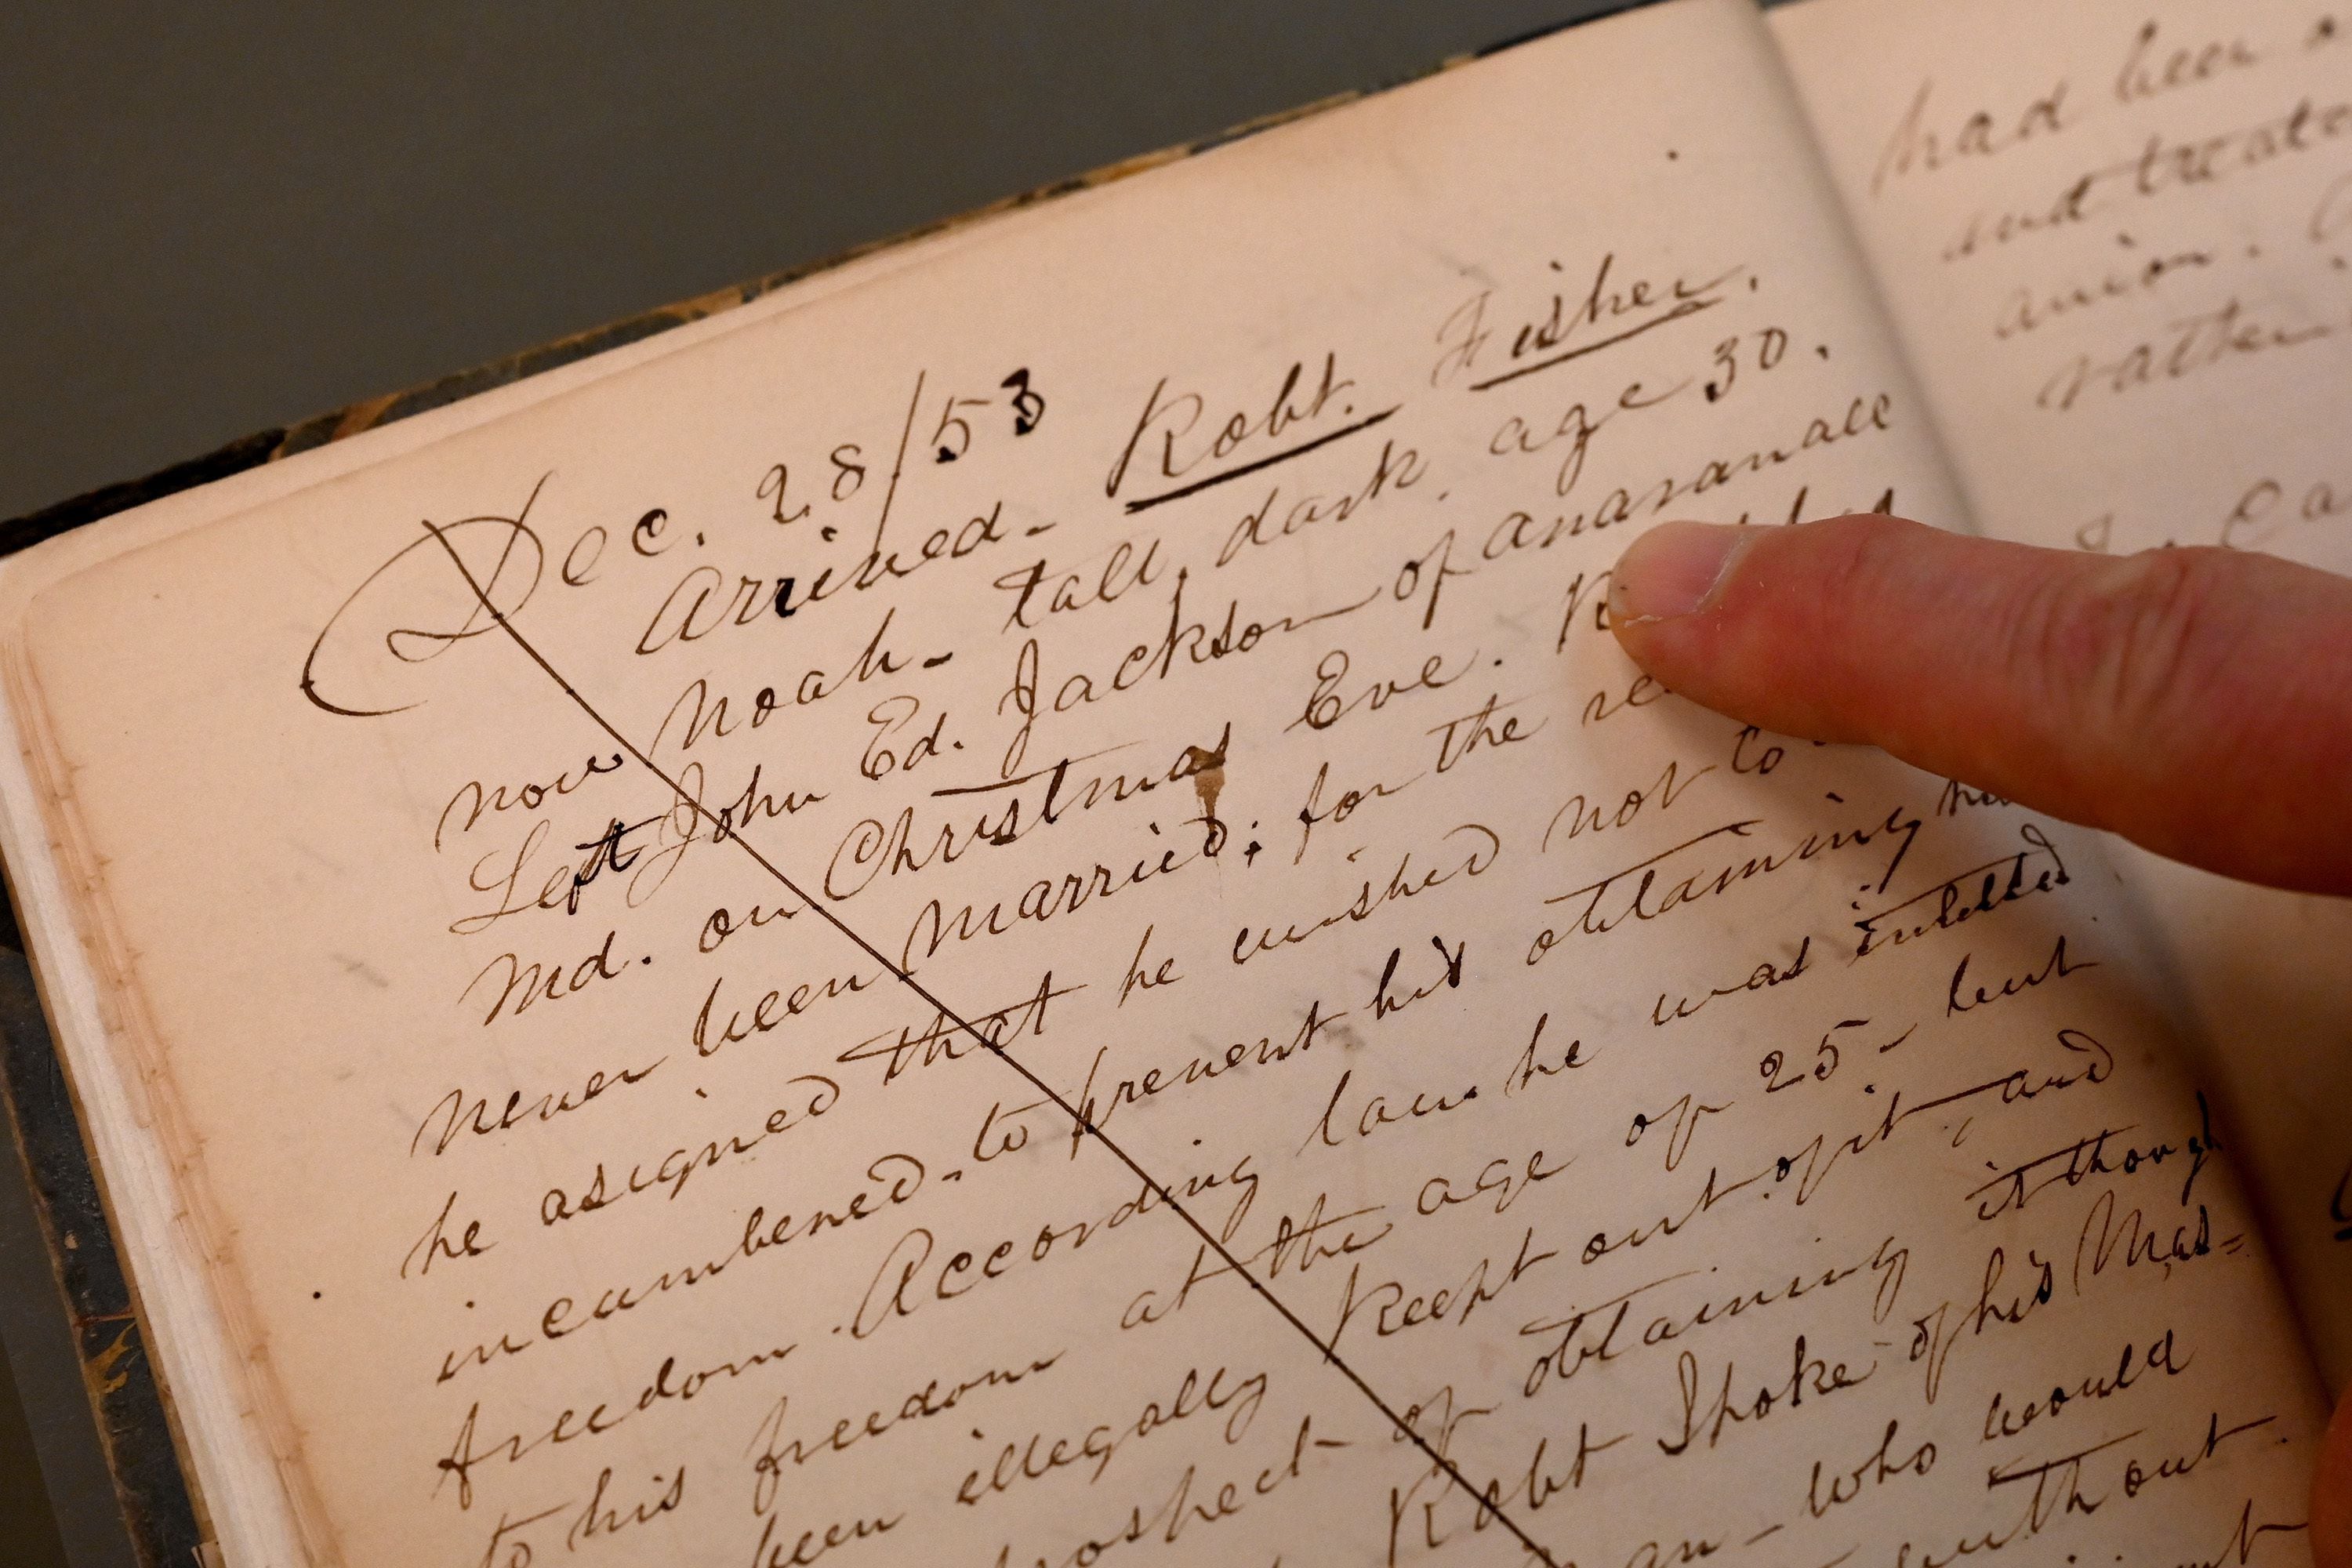 Dec. 28/53
Arrived - Robt. Fisher.
now Noah - tall, dark, age 30.
Left John Ed. Jackson of anaranall
Md. on Christmas Eve.
never been married; for the
he asigned that he wished not to
incumbered - to prevent his obtaining
freedom. According law he was intitled
to his freedom at the age of 25 - but
been illegally Keept out of it, and
of obtaining it though
Robt Spoke of his Mas=
who would
without
had been
and treate
anion.
rather